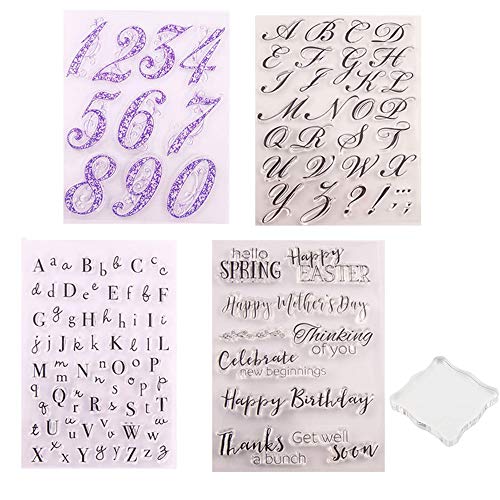 1234
567
890
A B C D
E F G H
I J K L
M N O P
Q R S T
U V W X
Y Z ? ! ; , .
A a a B b C c c
d D d e E e F f f
G g g h H h I i i
j J j k K k L l l
M m m N n n O o P p
q Q r R s S t T
t U u V v W w
X x x Y y y Z z z
hello SPRING
Happy EASTER
Happy Mother's Day
Thinking of you
Celebrate new beginnings
Happy Birthday
Thanks a bunch
Get well soon